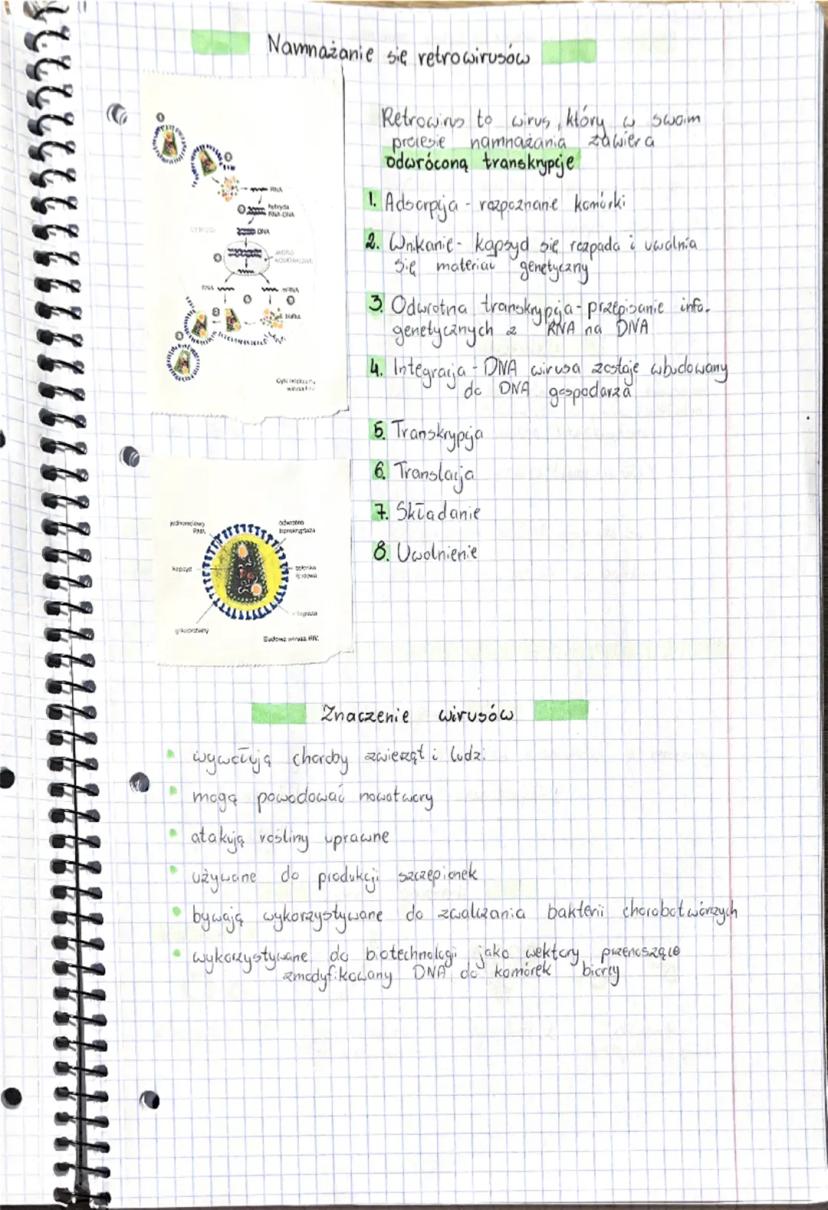 Namnażanie się retrowirusów
Retrowirus to wirus, który w swoim
procesie namnażania zawiera
odwróconą transkrypcje
1. Adsorpcja - rozpoznane komórki
2. Wnikanie - kapsyd się rozpada i uwalnia
się materiał genetyczny
3. Odwrotna transkrypcja - przepisanie info.
genetycznych z RNA na DNA
4. Integracja - DNA wirusa zostaje wbudowany
do DNA gospodarza
5. Transkrypcja
6. Translacja
7. Składanie
8. Uwolnienie
RNA
hybryda
RNA-DNA
DNA
RNA
mRNA
jednoniciowy
RNA
odwrotna
transkryptaza
kapsyd
osłonka
lipidowa
integraza
glikoproteiny
Budowa wirusa HIV.
Znaczenie wirusów
• wywołują choroby zwierząt i ludzi
• mogą powodować nowotwory
• atakują rośliny uprawne
• używane do produkcji szczepionek
• bywają wykorzystywane do zwalczania bakterii chorobotwórczych
• wykorzystywane do biotechnologi jako wektory przenoszące
zmodyfikowany DNA do komórek biorcy